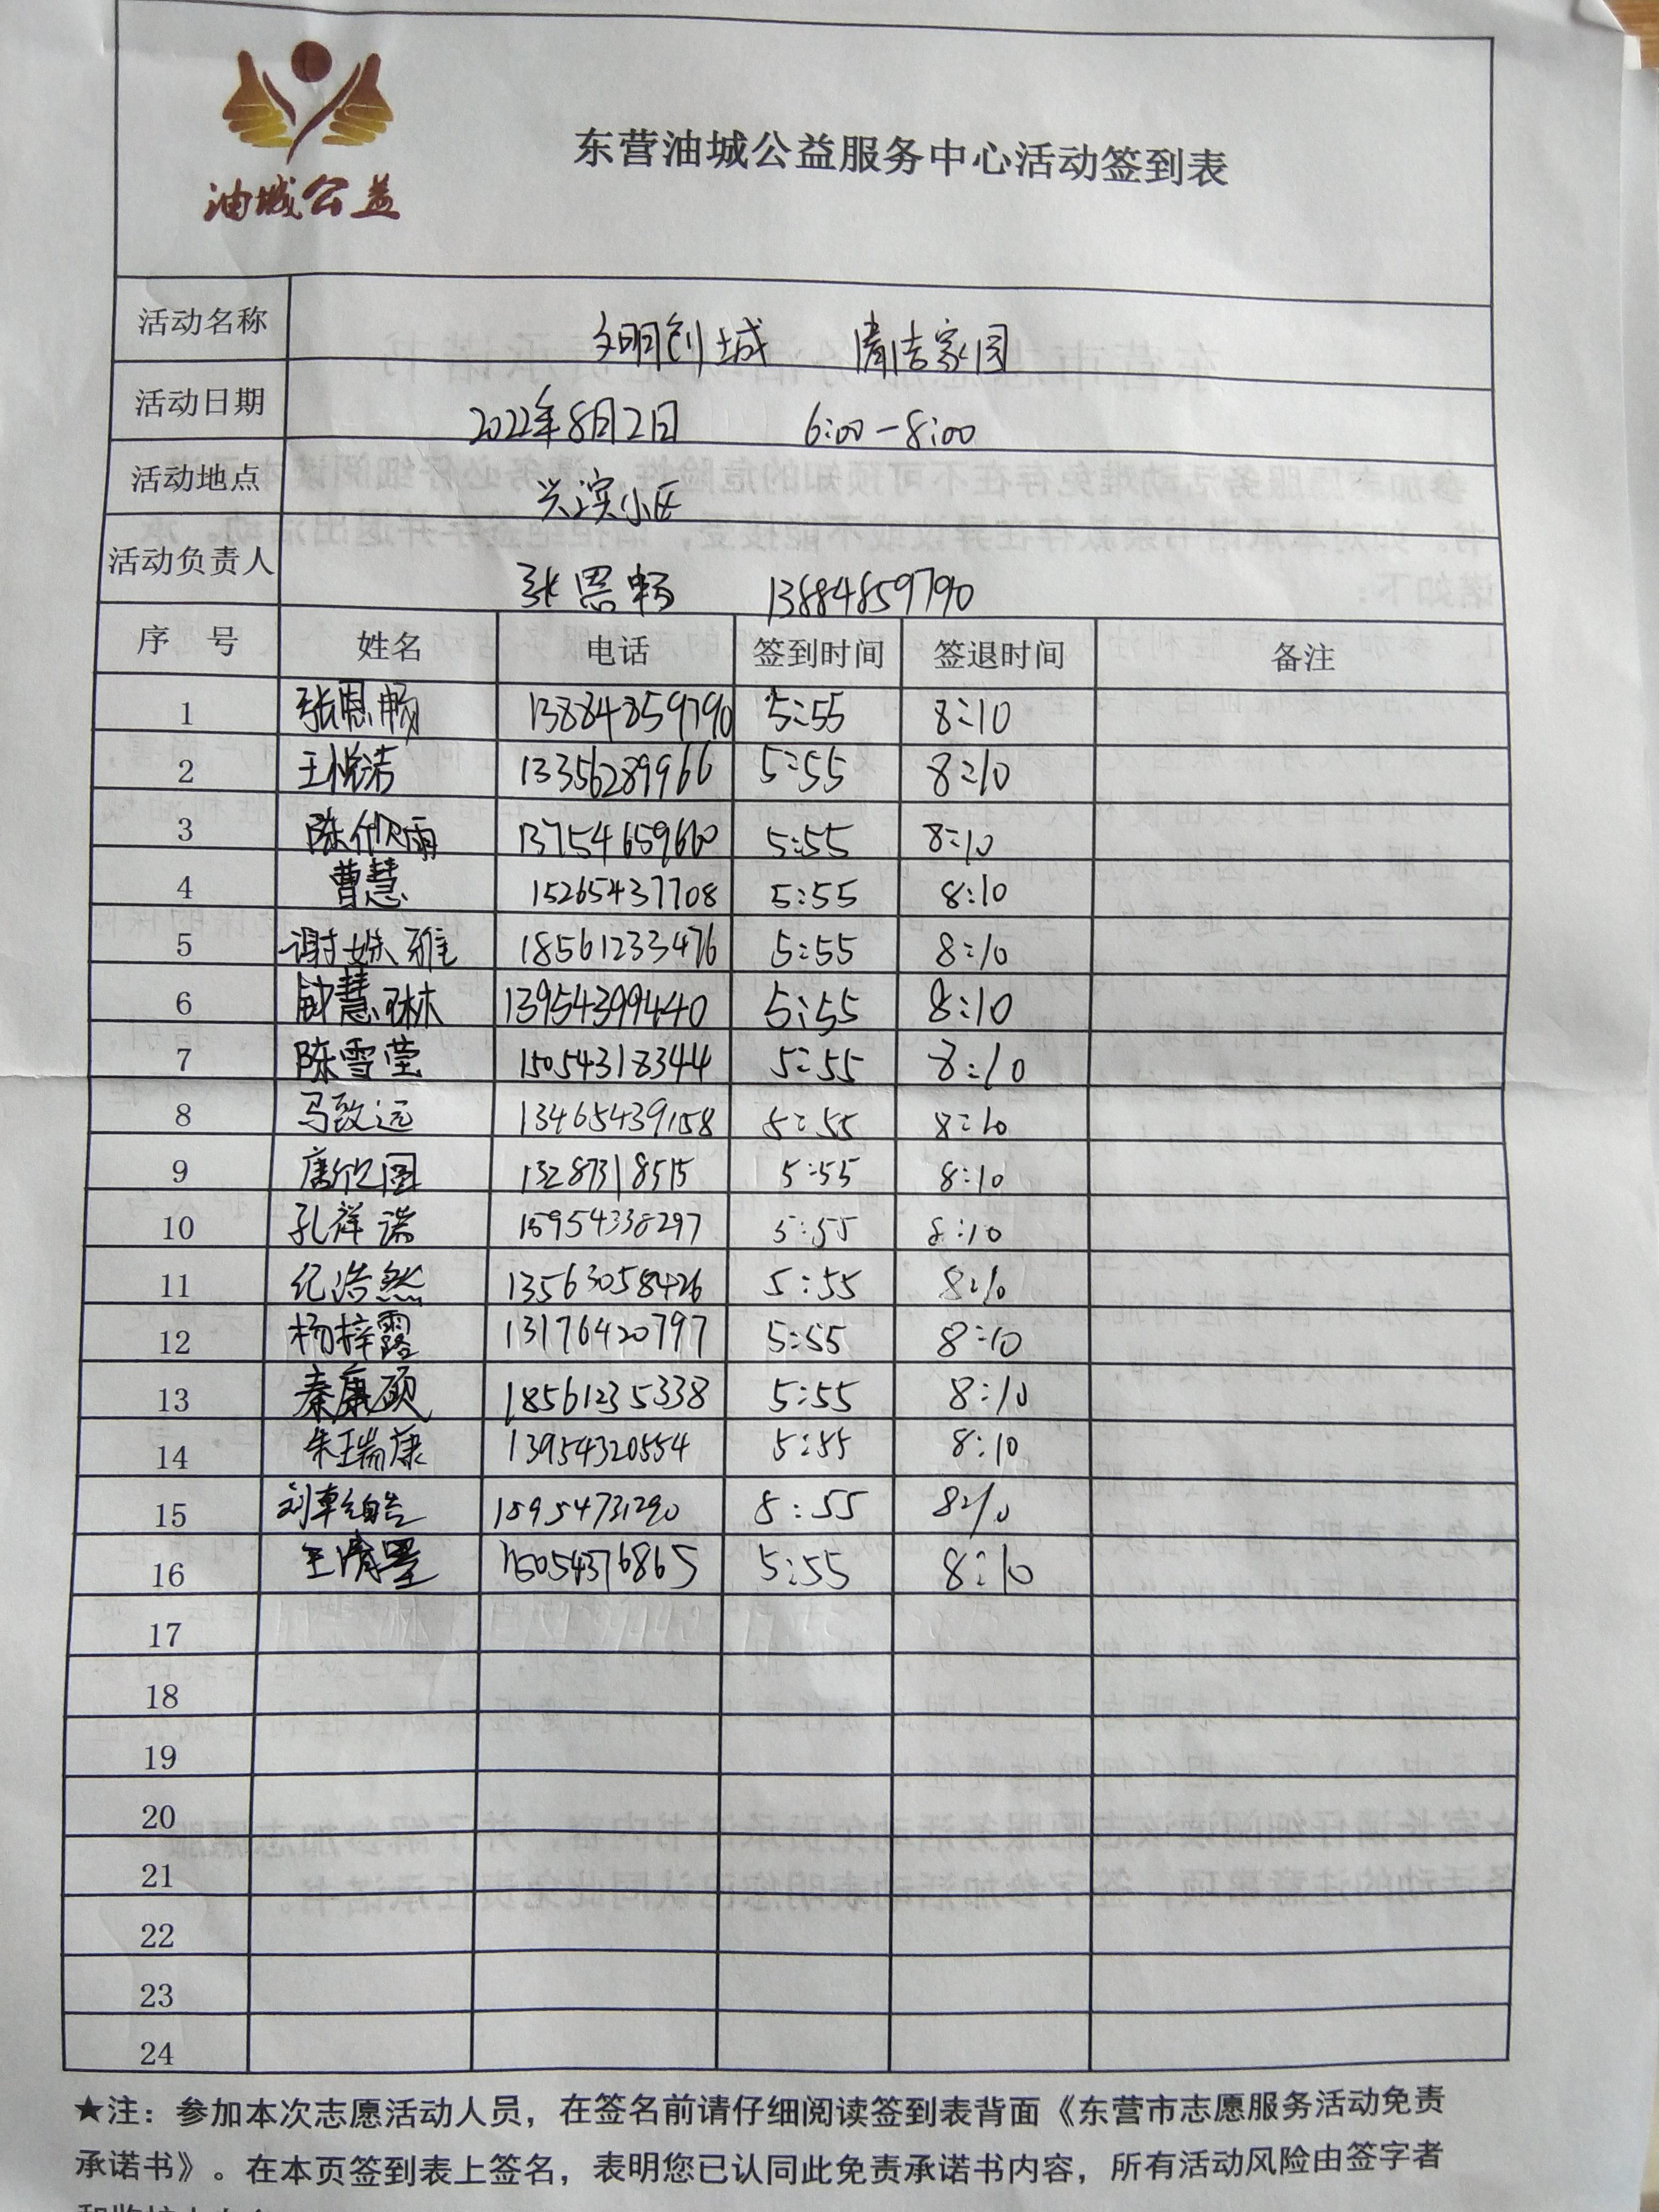 油城公益
东营油城公益服务中心活动签到表
活动名称 文明创城 清洁家园
活动日期 2022年8月2日 6:00-8:00
活动地点 兴滨小区
活动负责人 张恩畅 13884859790
序号 姓名 电话 签到时间 签退时间 备注
1 张恩畅 13884859790 5:55 8:10
2 王悦洁 13356289966 5:55 8:10
3 陈欣雨 13754659660 5:55 8:10
4 曹慧 15265437708 5:55 8:10
5 谢姝雅 18561233476 5:55 8:10
6 慧琳 13954399440 5:55 8:10
7 陈雪莹 15054318344 5:55 8:10
8 马致远 13465439158 5:55 8:10
9 13287318515 5:55 8:10
10 孔祥诺 15954338297 5:55 8:10
11 纪浩然 13563058426 5:55 8:10
12 杨梓露 13176420797 5:55 8:10
13 秦康硕 18561235338 5:55 8:10
14 朱瑞康 13954320554 5:55 8:10
15 刘乾皓 15954731290 5:55 8:10
16 王清墨 15054376865 5:55 8:10
17
18
19
20
21
22
23
24
★注：参加本次志愿活动人员，在签名前请仔细阅读签到表背面《东营市志愿服务活动免责
承诺书》。在本页签到表上签名，表明您已认同此免责承诺书内容，所有活动风险由签字者